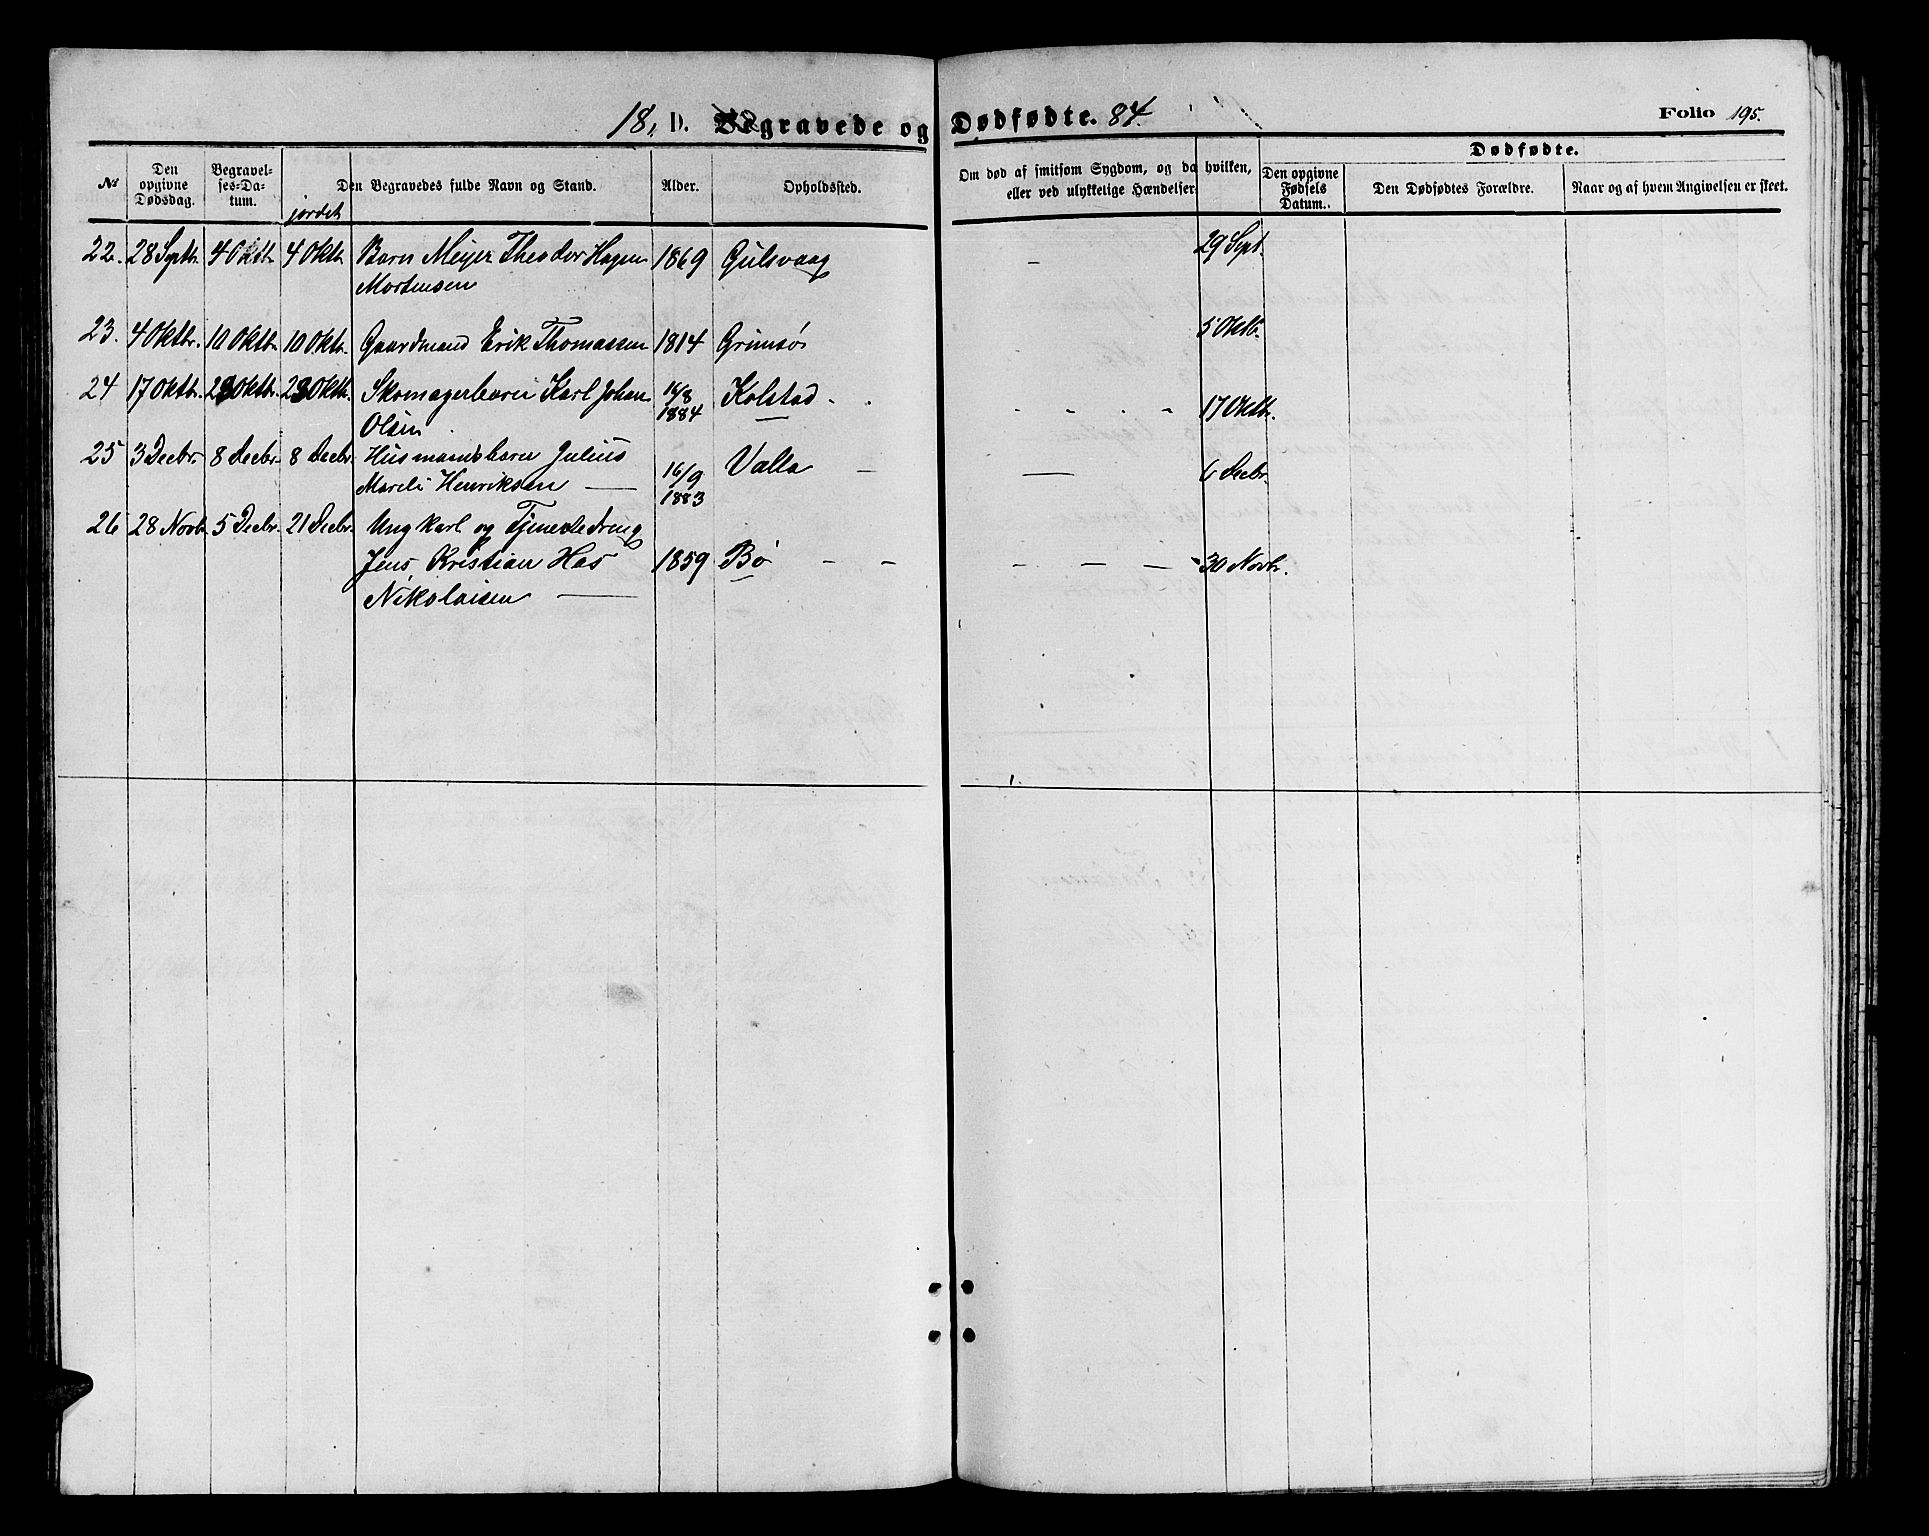 18, D. Begravede og Dødfødte. 84. Folio 195.
№ Den opgivne Dødsdag. Begravelses-Datum. jordet Den Begravedes fulde Navn og Stand. Alder. Opholdssted. Om død af smitsom Sygdom, og da hvilken, eller ved ulykkelige Hændelser. Dødfødte. Den opgivne Fødsels Datum. Den Dødfødtes Forældre. Naar og af hvem Angivelsen er skeet.
22. 28 Septbr. 4 Oktbr. 4 Oktbr. Barn Meyer Theodor Hagen 1869 Gulsvaag - 29 Sept.
Mortensen
23. 4 Oktbr. 10 Oktbr. 10 Oktbr. Gaardmand Erik Thomassen 1814 Grimsø 5 Oktb.
24 17 Oktbr. 23 Oktbr. 23 Oktbr. Skomagerbarn Karl Johan 16/8 1884 Kolstad - 17 Oktbr.
Olsen
25 3 Decbr. 8 Decbr. 8 Decbr. Husmandsbarn Julius 16/9 1883 Valla — 6 Decbr.
Henriksen —
26 28 Novbr. 5 Decbr. 21 Decbr. Ungkarl og Tjenestedreng
Jens Kristian Has 1859 Bø - - - - - - 30 Novbr.
Nikolaisen —